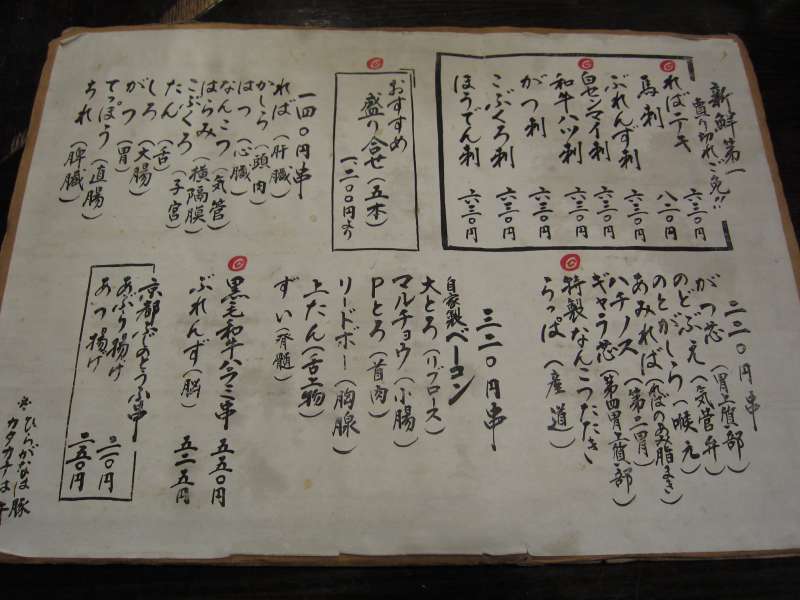 新鮮第一
売り切れご免!!
ればテキ 六三〇円
馬刺 八二〇円
ぶれんず刺 六三〇円
白センマイ刺 六三〇円
和牛ハツ刺 六三〇円
がつ刺 六三〇円
こぶくろ刺 六三〇円
ほうでん刺 六三〇円
おすすめ
盛り合せ(五本)
一、二〇〇円より
一四〇円串
れば(肝臓)
かしら(頭肉)
はつ(心臓)
なんこつ(気管)
はらみ(横隔膜)
こぶくろ(子宮)
たん(舌)
しろ(大腸)
がつ(胃)
てっぽう(直腸)
ちれ(脾臓)
二二〇円串
がつ芯(胃上質部)
のどぶえ(気管弁)
のどがしら(喉元)
あみれば(ればのあみ脂まき)
ハチノス(第二胃)
ギャラ芯(第四胃上質部)
特製なんこつたたき
らっぱ(産道)
三二〇円串
自家製ベーコン
大とろ(リブロース)
マルチョウ(小腸)
Pとろ(首肉)
リードボー(胸腺)
上たん(舌上物)
ずい(脊髄)
黒毛和牛ハラミ串 五五〇円
ぶれんず(脳) 五二五円
あぶり揚げ 二一〇円
あつ揚げ 二五〇円
※ひらがなは豚
カタカナは牛